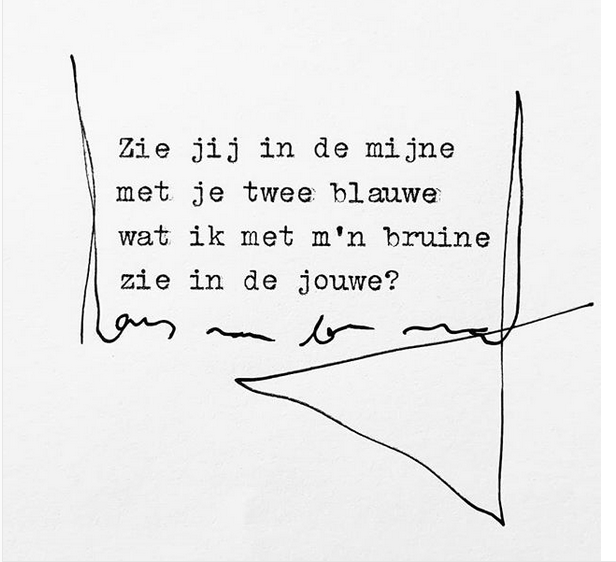 Zie jij in de mijne
met je twee blauwe
wat ik met m'n bruine
zie in de jouwe?